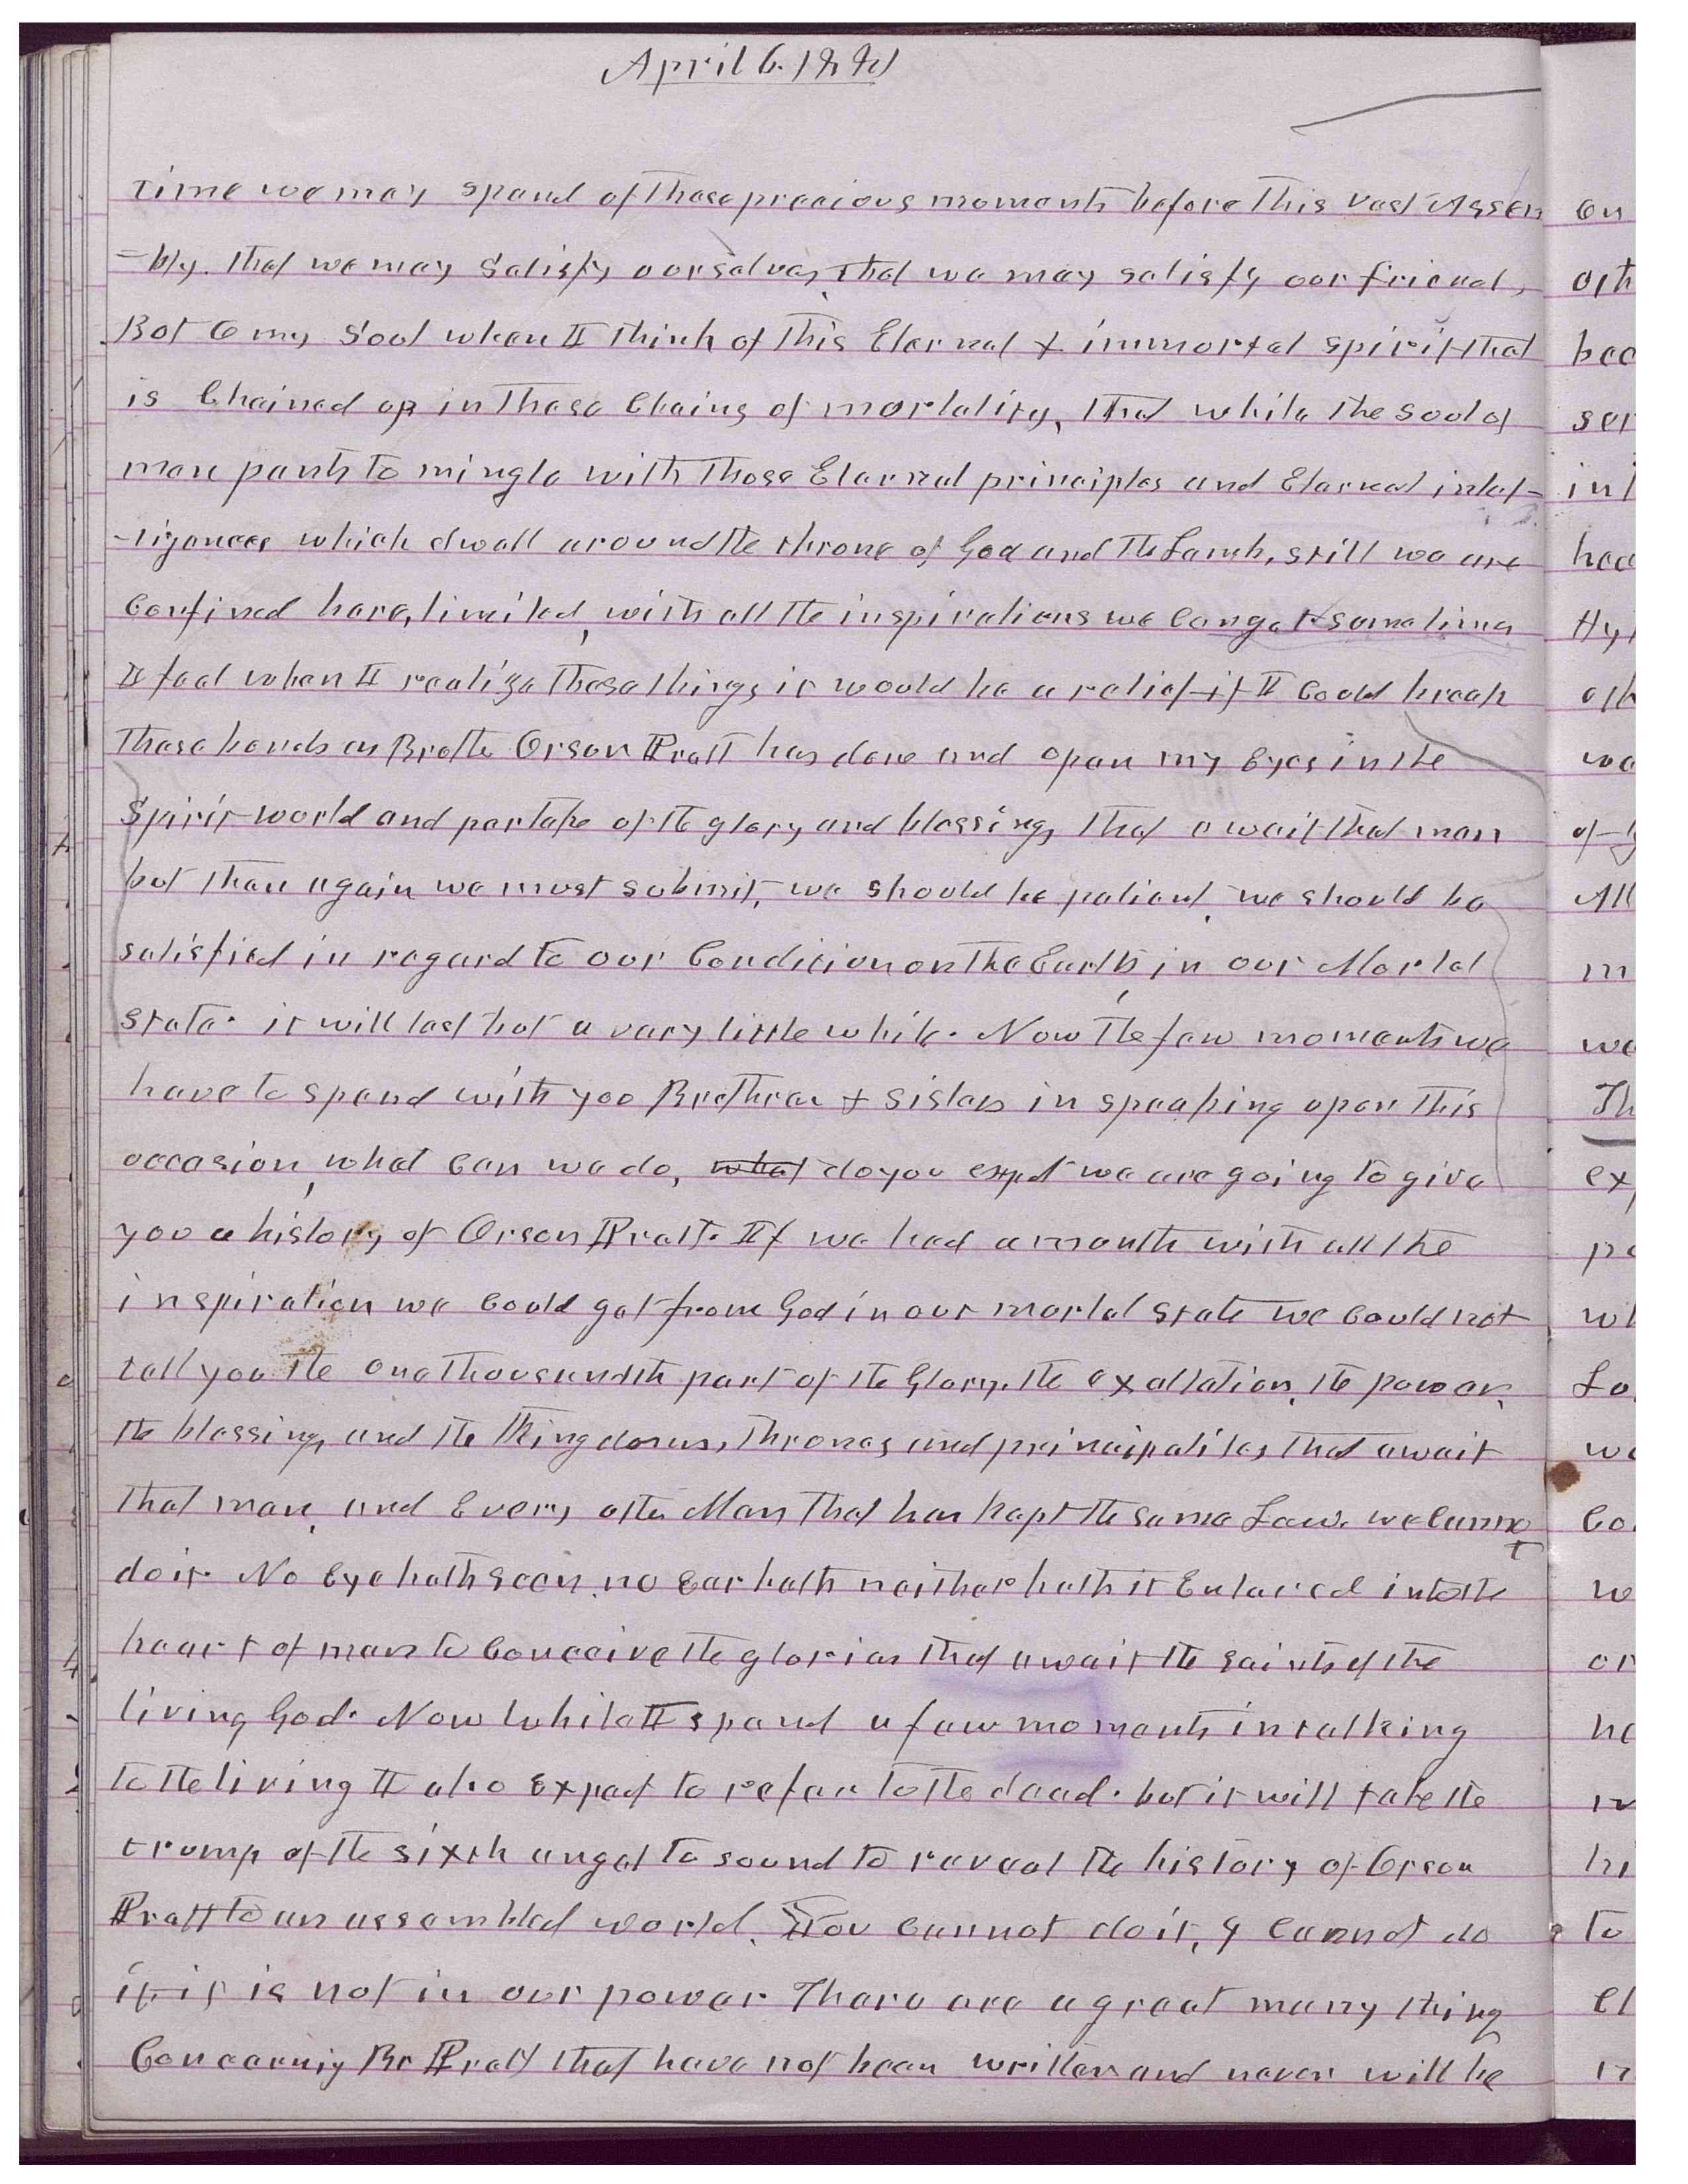 April 6. 1881
time we may spend of these precious moments before this vast Assem
-bly. that we may satisfy ourselves, that we may satisfy our friends,
But O my Soul when I think of this Eternal & immortal spirit that
is Chained up in these Chains of mortality, that while the soul of
man pants to mingle with those Eternal principles and Eternal intel-
-ligences which dwell around the throne of God and the Lamb, still we are
Confined here, limited, with all the inspirations we can get & sometimes
I feel when I realize these things it would be a relief if I Could break
these bonds as Brother Orson Pratt has done and open my Eyes in the
Spirit world and partake of the glory and blessings that await that man
but then again we must submit, we should be patient, we should be
satisfied in regard to our Condition on the Earth, in our Mortal
state. it will last but a very little while. Now the few moments we
have to spend with you Brethren & Sisters in speaking upon this
occasion, what Can we do, what do you expect we are going to give
you a history of Orson Pratt. If we had a month with all the
inspiration we Could get from God in our mortal state we Could not
tell you the one thousandth part of the Glory, the exaltation, the power,
the blessings and the Kingdoms, thrones and principalities that await
that man, and Every other Man that has kept the same Law. we Canno
t
do it. No Eye hath seen, no Ear hath neither hath it Entered into the
heart of man to Conceive the glories that await the saints of the
living God. Now while I spend a few moments in talking
to the living I also Expect to refer to the dead. but it will take the
trump of the sixth angel to sound to reveal the history of Orson
Pratt to an assembled world. You Cannot do it, I Cannot do
it it is not in our power There are a great many things
Concerning Br Pratt that have not been written and never will be